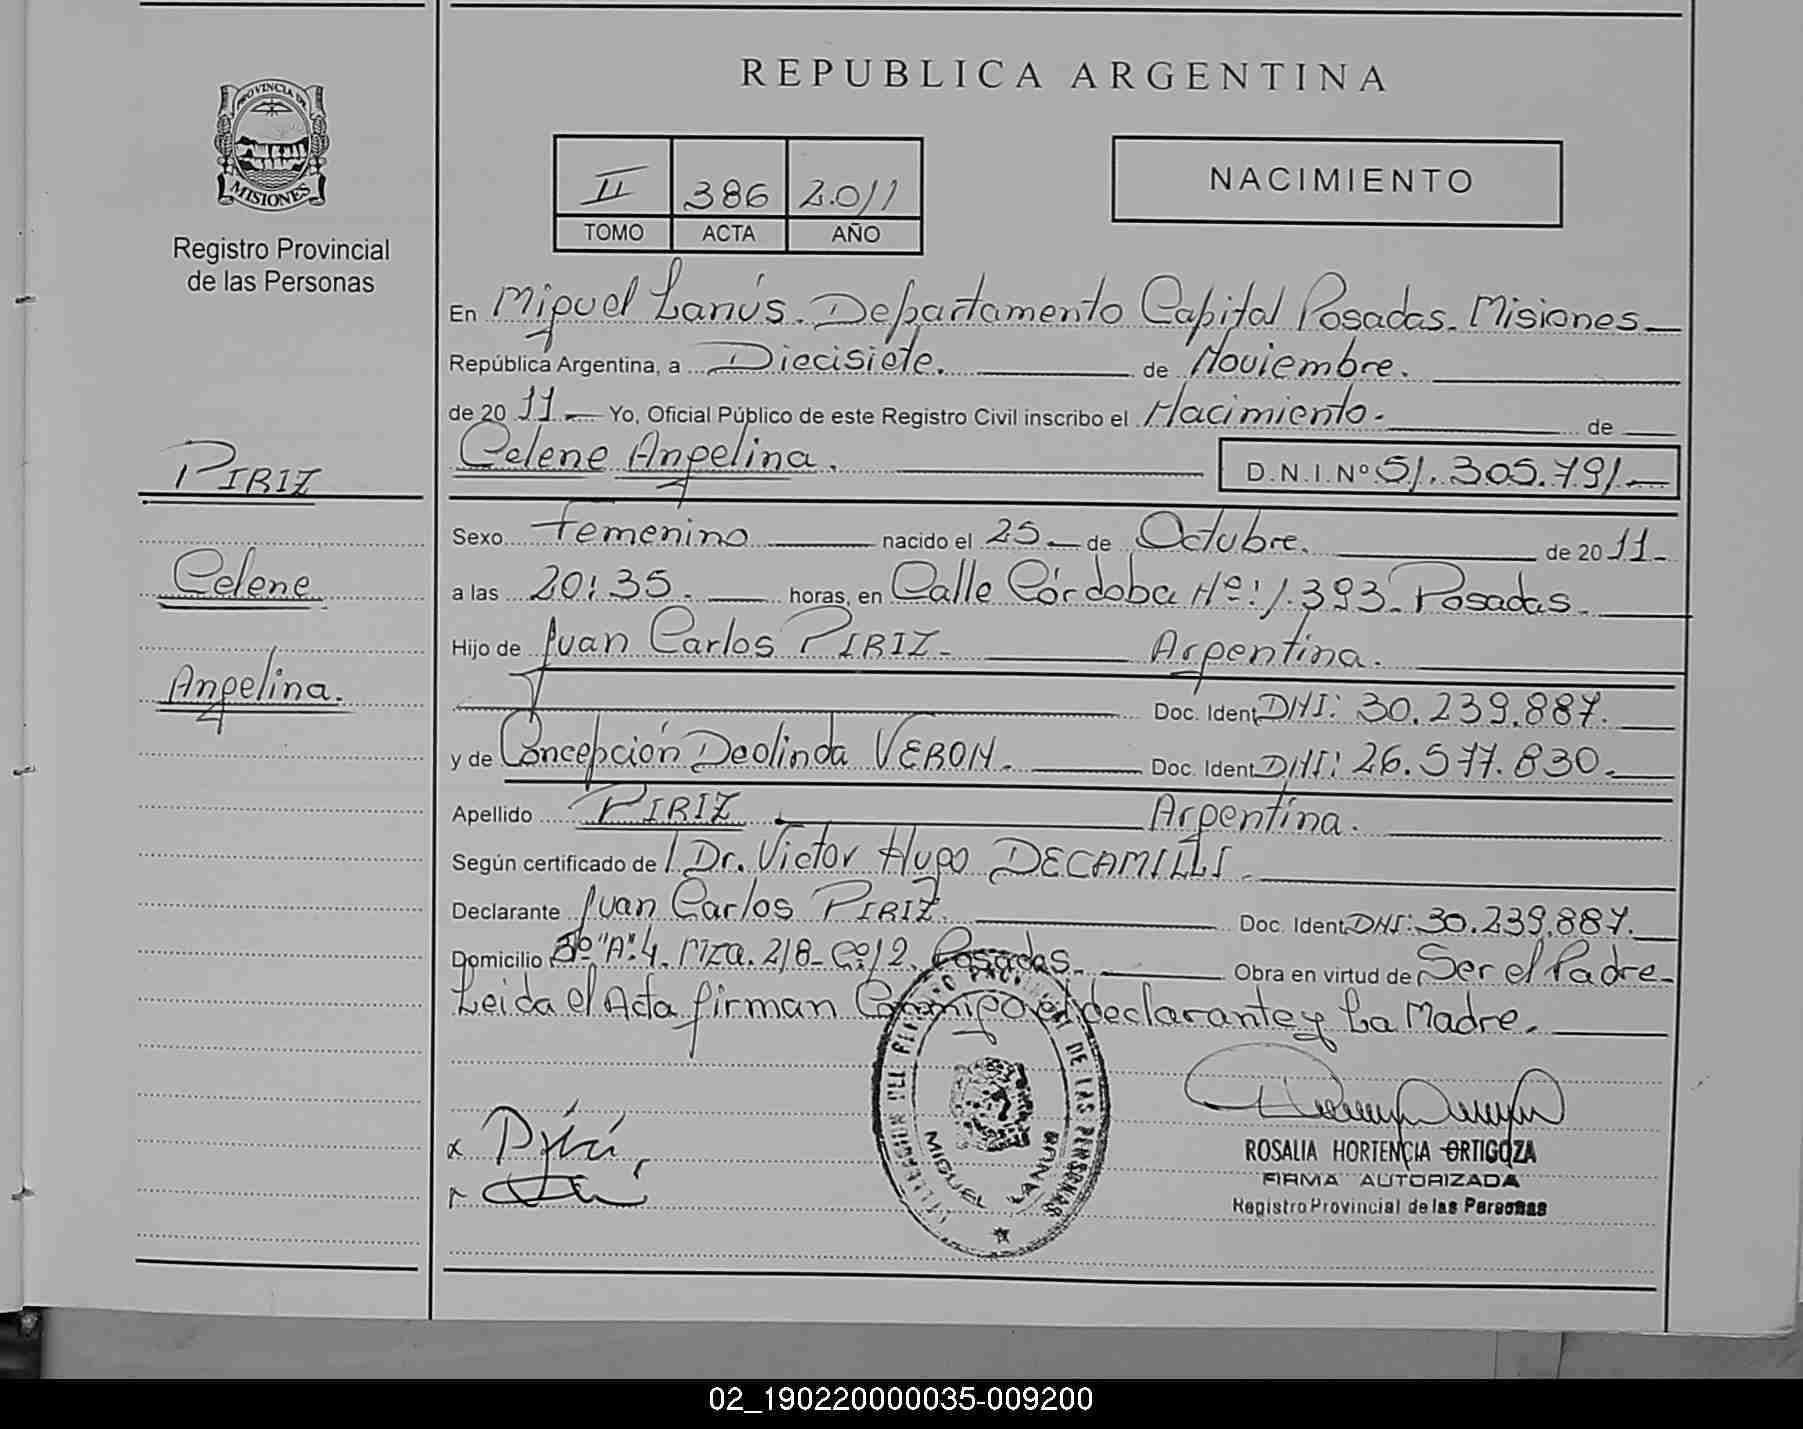 REPUBLICA ARGENTINA
PROVINCIA DE
MISIONES
Registro Provincial
de las Personas
II 386 2.011
TOMO ACTA AÑO
NACIMIENTO
En Miguel Lanús. Departamento Capital Posadas. Misiones
República Argentina, a Diecisiete. de Noviembre.
de 20 11 Yo, Oficial Público de este Registro Civil inscribo el Nacimiento. de
Celene Angelina. D.N.I. Nº 51.305.791
PIRIZ
Celene
Angelina.
Sexo Femenino nacido el 25 de Octubre. de 20 11
a las 20:35. horas, en Calle Córdoba Nº: 1.393. Posadas.
Hijo de Juan Carlos PIRIZ Argentina.
Doc. Ident. DNI: 30.239.887.
y de Concepción Deolinda VERON. Doc. Ident. DNI: 26.577.830.
Apellido PIRIZ Argentina.
Según certificado de Dr. Victor Hugo DECAMILLI.
Declarante Juan Carlos PIRIZ. Doc. Ident. DNI: 30.239.887.
Domicilio "A" 4. Mza. 218 Posadas. Obra en virtud de Ser el Padre
Leida el Acta firman Conmigo el declarante y La Madre.
DEL REGISTRO PROVINCIAL DE LAS PERSONAS
MIGUEL LANUS
ROSALIA HORTENCIA ORTIGOZA
FIRMA AUTORIZADA
Registro Provincial de las Personas
02_190220000035-009200